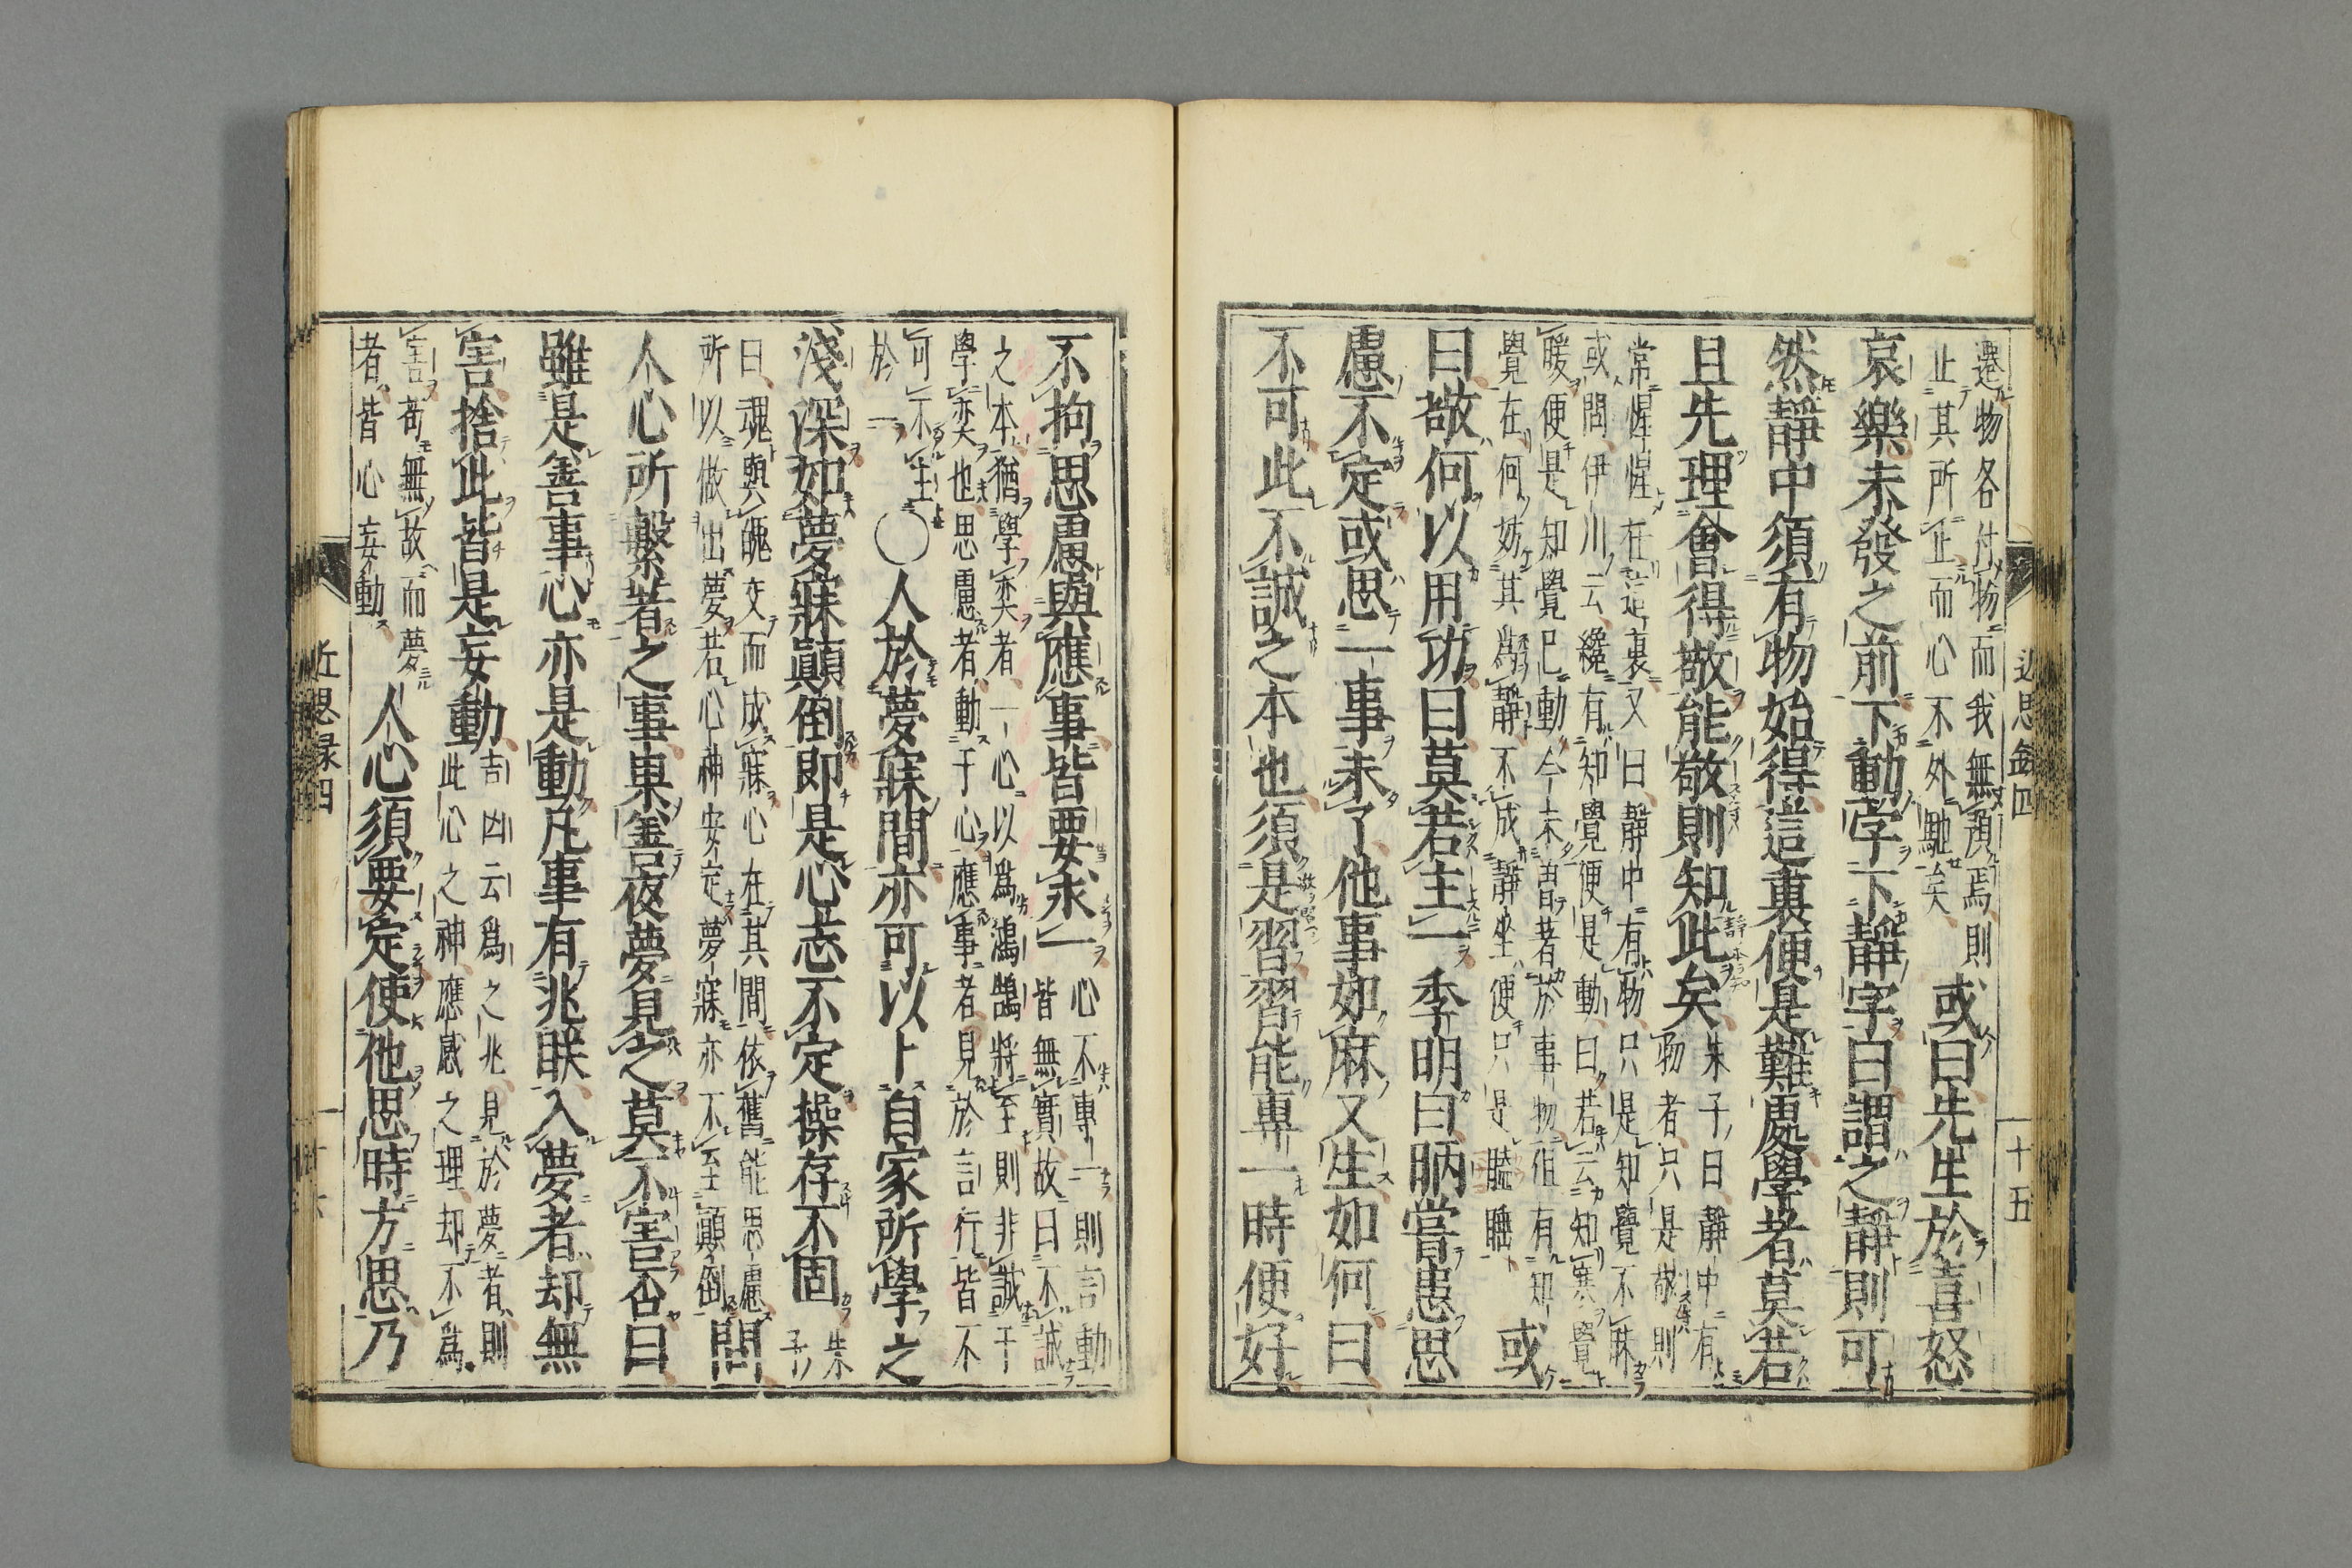 近思録四
十五
遷物各付物而我無預焉則
止其所止而心不外馳矣
或曰先生於喜怒
哀樂未發之前下動字下靜字曰謂之靜則可
然靜中須有物始得這裏便是難處學者莫若
且先理會得敬能敬則知此矣
朱子曰靜中有
物者只是敬則
常惺惺在這裏又曰靜中有物只是知覺不昧
或問伊川云纔有知覺便是動曰若云知寒覺
暖便是知覺已動今未曾著於事物但有知
覺在何妨其爲靜不成靜坐便只是瞌睡
或
曰敬何以用功曰莫若主一季明曰昞嘗患思
慮不定或思一事未了他事如麻又生如何曰
不可此不誠之本也須是習習能專一時便好
不拘思慮與應事皆要求一
心不專一則言動
皆無實故曰不誠
之本猶學奕者一心以爲鴻鵠將至則非誠于
學奕也思慮者動于心應事者見於言行皆不
可不主
於一
〇人於夢寐間亦可以卜自家所學之
淺深如夢寐顚倒即是心志不定操存不固
朱
子
曰魂與魄交而成寐心在其間依舊能思慮
所以做出夢若心神安定夢寐亦不至顚倒
問
人心所繫著之事果善夜夢見之莫不害否曰
雖是善事心亦是動凡事有兆朕入夢者却無
害捨此皆是妄動
吉凶云爲之兆見於夢者則
此心之神應感之理却不爲
害苟無故而夢
者皆心妄動
人心須要定使他思時方思乃
近思録四
十六